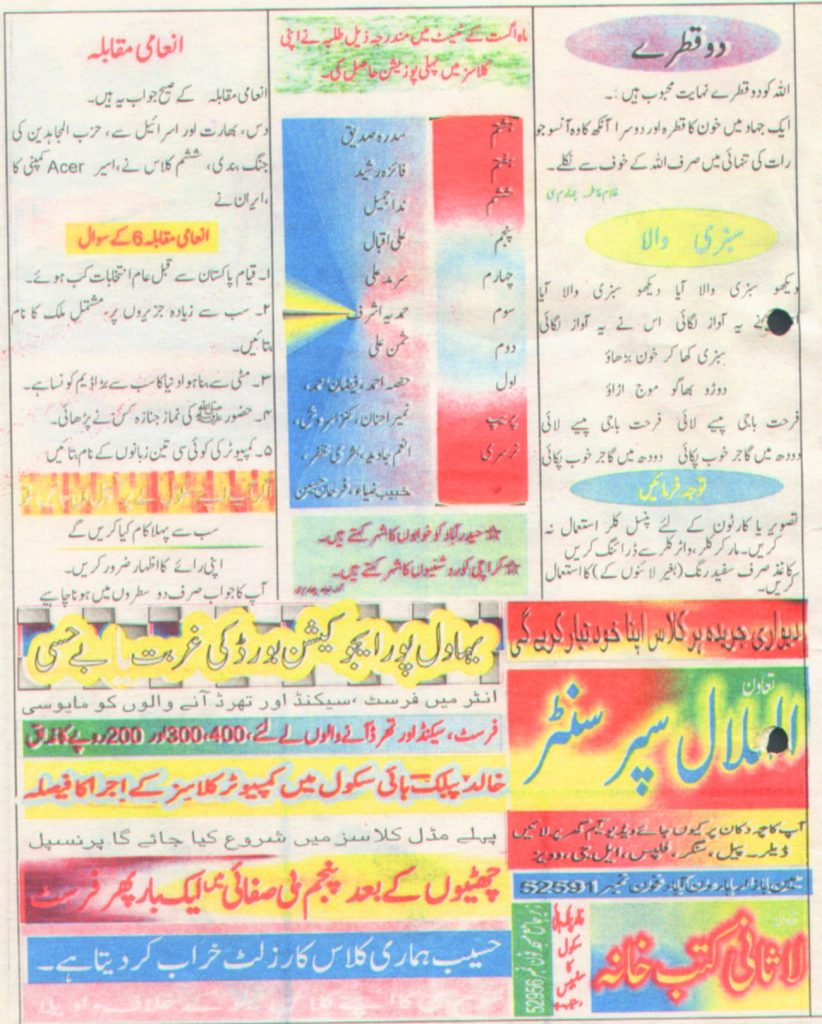 دو قطرے
اللہ کو دو قطرے نہایت محبوب ہیں :۔
ایک جہاد میں خون کا قطرہ اور دوسرا آنکھ کا وہ آنسو جو
رات کی تنہائی میں صرف اللہ کے خوف سے نکلے۔
سبزی والا
دیکھو سبزی والا آیا دیکھو سبزی والا آیا
نے یہ آواز لگائی اس نے یہ آواز لگائی
سبزی کھا کر خون بڑھاؤ
دوڑو بھاگو موج اڑاؤ
فرحت باجی پیسے لائی فرحت باجی پیسے لائی
دودھ میں گاجر خوب پکائی دودھ میں گاجر خوب پکائی
توجہ فرمائیں
تصویر یا کارٹون کے لئے پنسل کلر استعمال نہ
کریں۔ مار کر کلر، واٹر کلر سے ڈرائنگ کریں
کاغذ صرف سفید رنگ (بغیر لائنوں کے) کا استعمال
کریں۔
ماہ اگست کے ٹیسٹ میں مندرجہ ذیل طلبہ نے اپنی
کلاسز میں پہلی پوزیشن حاصل کی۔
ہشتم سدرہ صدیق
ہفتم فائزہ رشید
ششم ندا جمیل
پنجم علی اقبال
چہارم سرمد علی
سوم حمدیہ اشرف
دوم ثمن علی
اول حفصہ احمد، فیضان احمد،
پریپ نمیر احنان، کنزا سروش،
نرسری انعم جاوید، بشریٰ ظفر،
خبیب ضیاء، فرحان حسین
☆ حیدر آباد کو خوابوں کا شہر کہتے ہیں۔
☆ کراچی کو روشنیوں کا شہر کہتے ہیں۔
انعامی مقابلہ
انعامی مقابلہ کے صحیح جواب یہ ہیں۔
دس، بھارت اور اسرائیل سے، حزب المجاہدین کی
جنگ بندی، ششم کلاس نے، اسیر Acer کمپنی کا
،ایران نے
انعامی مقابلہ 6 کے سوال
۱۔ قیام پاکستان سے قبل عام انتخابات کب ہوئے۔
۲۔ سب سے زیادہ جزیروں پر مشتمل ملک کا نام
بتائیں۔
۳۔ مٹی سے بنا ہوا دنیا کا سب سے بڑا ڈیم کونسا ہے۔
۴۔ حضور ﷺ کی نماز جنازہ کس نے پڑھائی۔
۵۔ کمپیوٹر کی کوئی سی تین زبانوں کے نام بتائیں
سب سے پہلا کام کیا کریں گے
اپنی رائے کا اظہار ضرور کریں۔
آپ کا جواب صرف دو سطروں میں ہونا چاہیے
دیواری جریدہ ہر کلاس اپنا خود تیار کرے گی
تعاون
الہلال سپر سنٹر
آپ کا چہ دکان پر کیوں جائے ویڈیو گیم گھر پر لائیں
ڈیلر۔ پیل، سنگر، فلپس، ایل جی، وویز
مین بازار ہارون آباد فون نمبر 52591
لاثانی کتب خانہ
نزد جامع مسجد فون نمبر 52956
بہاول پور ایجوکیشن بورڈ کی غربت یا بے حسی
انٹر میں فرسٹ ،سیکنڈ اور تھرڈ آنے والوں کو مایوسی
فرسٹ، سیکنڈ اور تھرڈ آنے والوں کے لئے، 400، 300 اور 200 روپے کا مذاق
خالد پبلک ہائی سکول میں کمپیوٹر کلاسز کے اجرا کا فیصلہ
پہلے مڈل کلاسز میں شروع کیا جائے گا پرنسپل
چھٹیوں کے بعد پنجم بی صفائی میں ایک بار پھر فرسٹ
حسیب ہماری کلاس کا رزلٹ خراب کر دیتا ہے۔